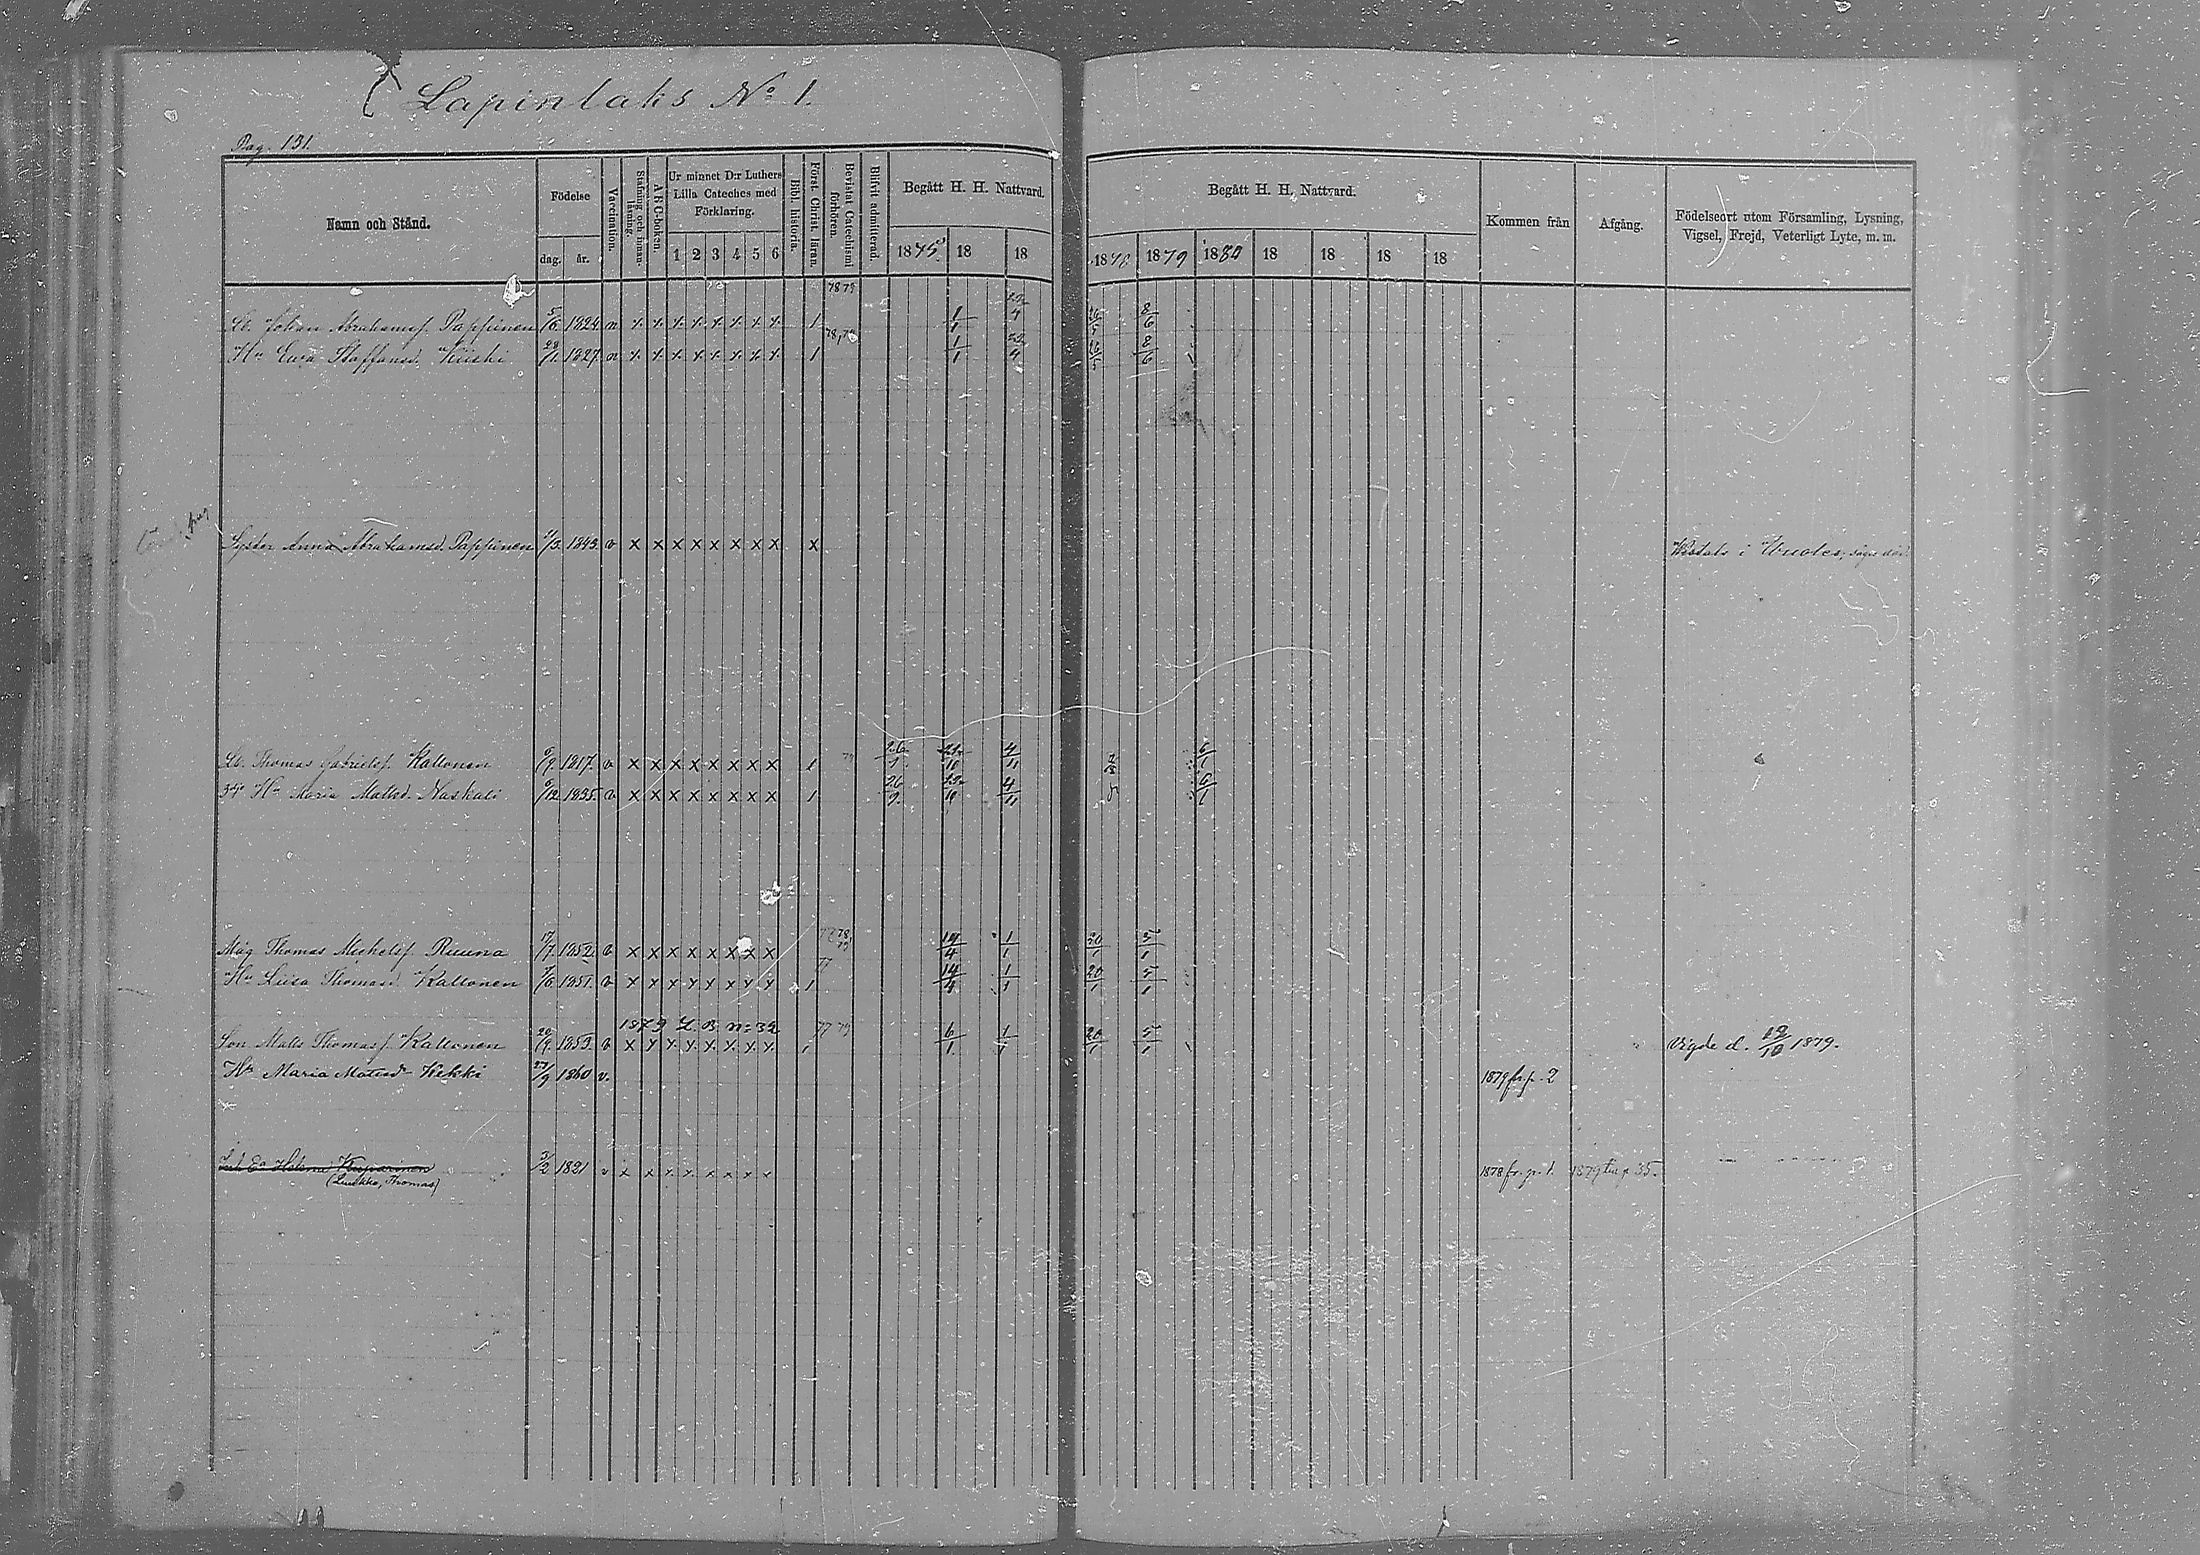 Lapinlaks No 1.
Pag. 131.
Namn och Stånd.
Födelse
dag. år.
Vaccination.
Stafning och innanläsning.
ABC-boken.
Ur minnet D:r Luthers Lilla Cateches med Förklaring.
1 2 3 4 5 6
Bibl. historia.
Först. Christ. läran.
Bevistat Catechismi förhören.
Blifvit admitterad.
Begått H. H. Nattvard.
1875 18 18
Begått H. H. Nattvard.
1878 1879 1880 18 18 18 18
Kommen från
Afgång.
Födelseort utom Församling, Lysning, Vigsel, Frejd, Veterligt Lyte, m. m.
78 79
Johan Abrahamsf. Pappinen 5/6 1824 x x x x x x x x 1 1/1 22/4 26/5 8/6
78, 79
Hu Eva Staffansd. Kiiski 28/1 1827 x x x x x x x x 1 1/1 22/4 26/5 8/6
Syster Anna Abrahamsd. Pappinen 1843 v x x x x x x x x x i
Thomas Gabrielsf. Kallonen 6/9 1817 v x x x x x x x x 1 79 4/11 6/1
Hu Maria Mattsd. Naskali 6/12 1835 v x x x x x x x x 1 26/9 4/11 6/1
Måg Thomas Michelsf. Ruuna 17/7 1852 v x x x x x x x x 78 79 14/4 1/1 20/1 5/1
Hu Liisa Thomasd. Kallonen 1851 v x x x x x x x x 1 77 14/4 1/1 20/1 5/1
1879 L. B. n: 32
Son Matts Thomasf. Kallonen 20/9 1853 v x x x x x x x x 77 79 6/1 1/1 20/1 5/1 Vigde d. 12/10 1879.
Hu Maria Mattsd. Kekki 27/9 1860 v. 1879 fr. p. 2
Helena Kuparinen 3/2 1821 v x x x x x x x x 1878 fr. p. 1. 1879 till p. 35.
(Luukko, Thomas)